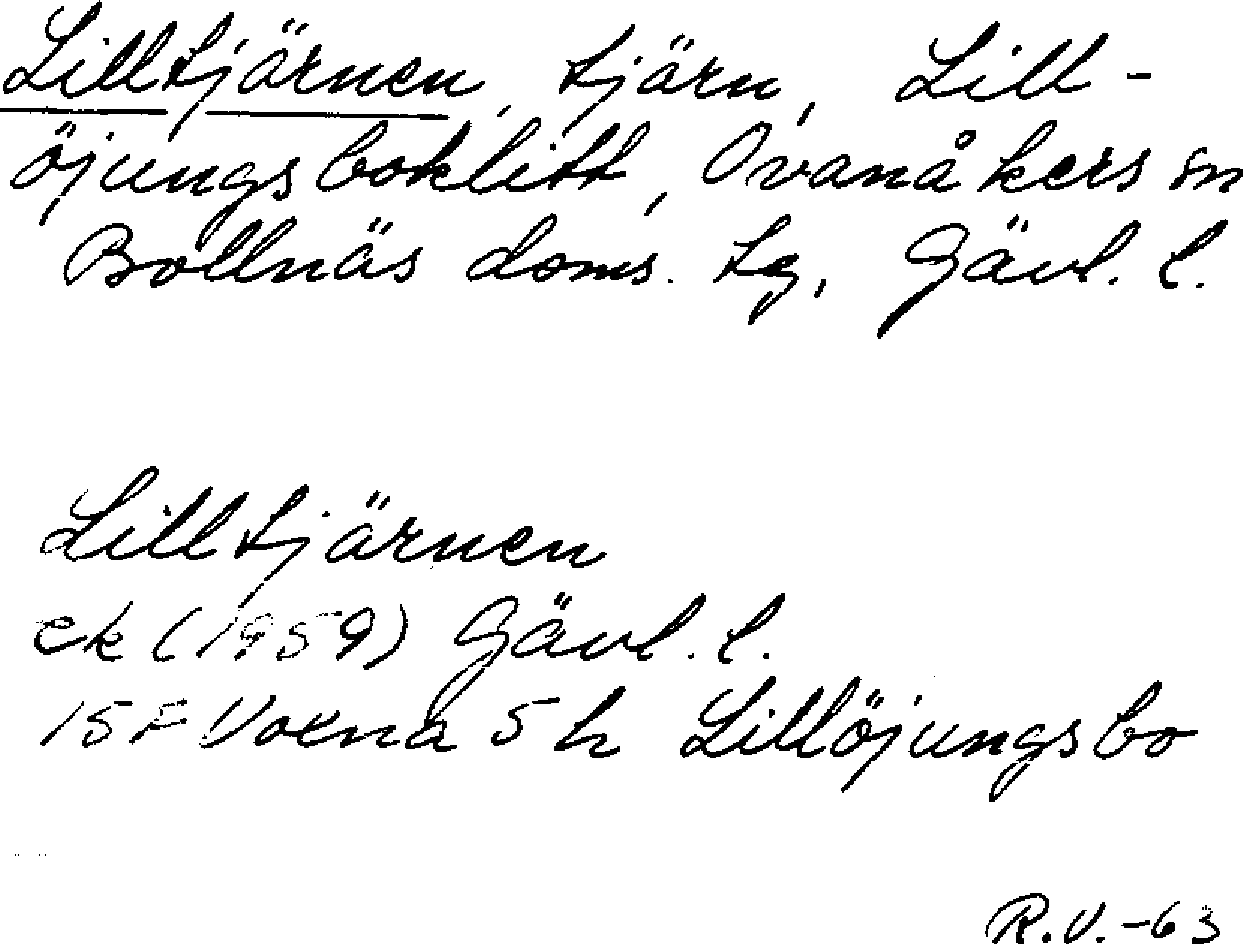 Lilltjärnen, tjärn, Lill-
öjungsboklitt, Ovanåkers sn
Bollnäs doms. tg, Gävl. l.
Lilltjärnen
ek (1959) Gävl. l.
15F Voxna 5h Lillöjungsbo
R.V. -63